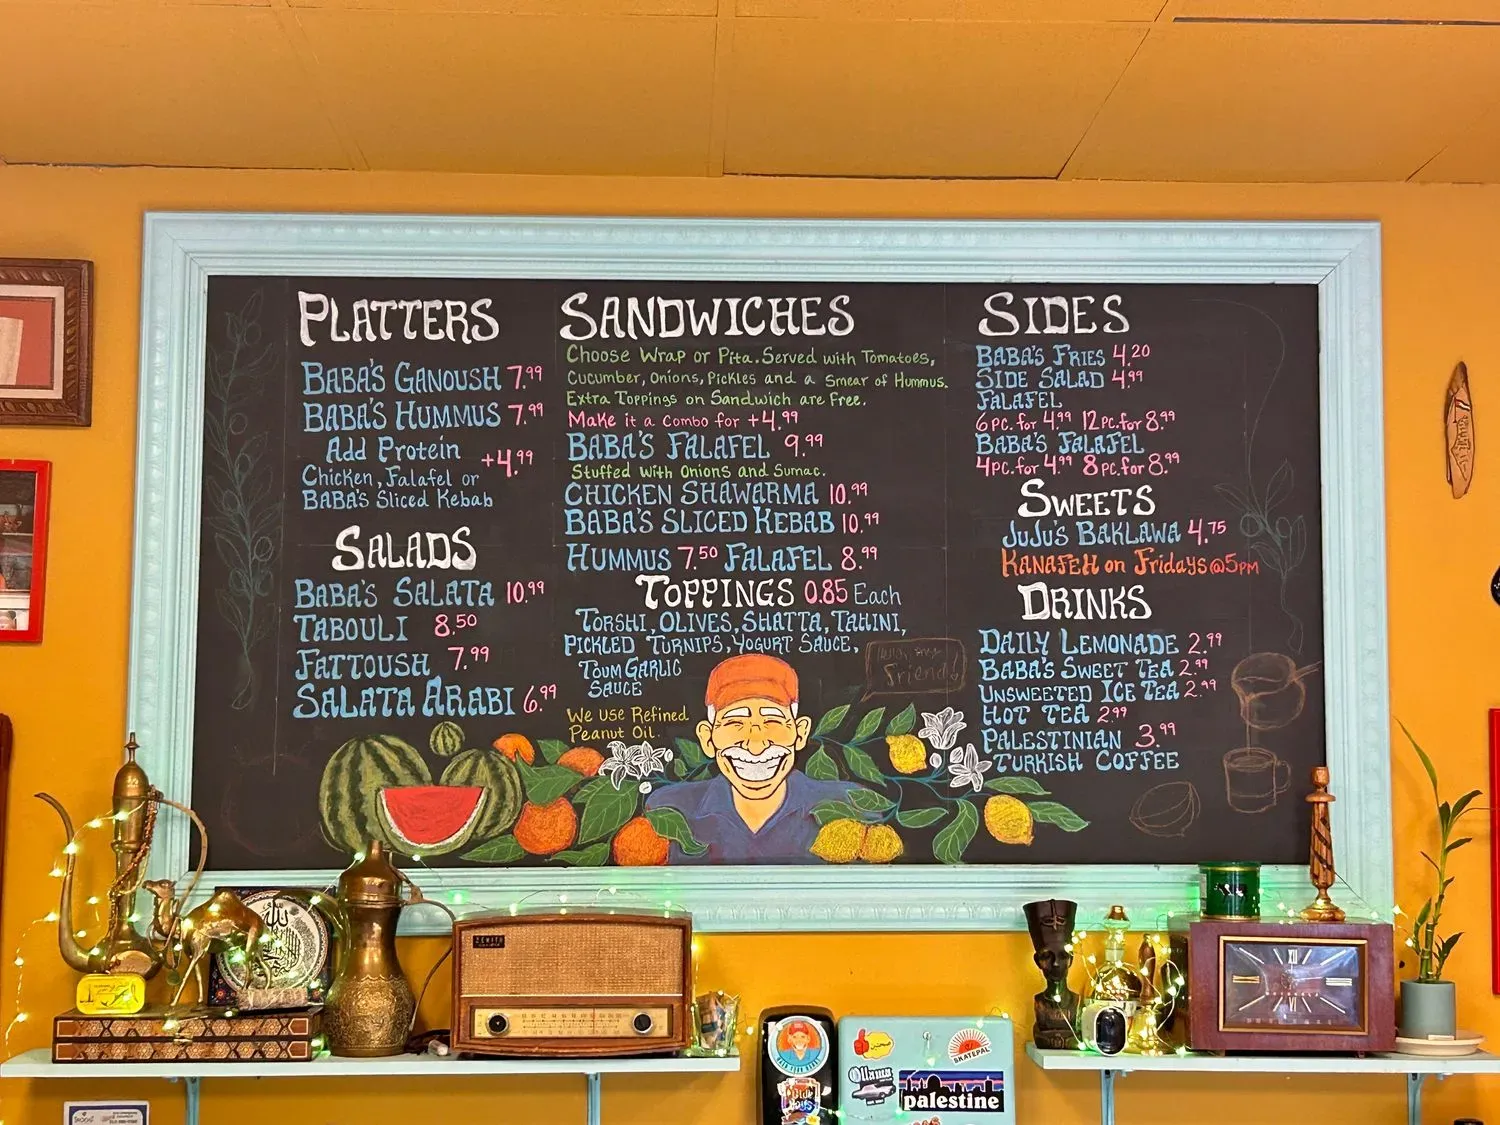 PLATTERS
BABA'S GANOUSH 7.99
BABA'S HUMMUS 7.99
Add Protein +4.99
Chicken, Falafel or
BABA'S Sliced Kebab
SALADS
BABA'S SALATA 10.99
TABOULI 8.50
FATTOUSH 7.99
SALATA ARABI 6.99
SANDWICHES
Choose Wrap or Pita. Served with Tomatoes,
Cucumber, Onions, Pickles and a Smear of Hummus.
Extra Toppings on Sandwich are Free.
Make it a Combo for +4.99
BABA'S FALAFEL 9.99
Stuffed with Onions and Sumac.
CHICKEN SHAWARMA 10.99
BABA'S SLICED KEBAB 10.99
HUMMUS 7.50 FALAFEL 8.99
TOPPINGS 0.85 Each
TORSHI, OLIVES, SHATTA, TAHINI,
PICKLED TURNIPS, YOGURT SAUCE,
TOUM GARLIC
SAUCE
We Use Refined
Peanut Oil.
friend!
SIDES
BABA'S FRIES 4.20
SIDE SALAD 4.99
FALAFEL
6 PC. for 4.99 12 PC. for 8.99
BABA'S FALAFEL
4 PC. for 4.99 8 PC. for 8.99
SWEETS
JUJU'S BAKLAWA 4.75
KANAFEH on Fridays @5PM
DRINKS
DAILY LEMONADE 2.99
BABA'S SWEET TEA 2.99
UNSWEETED ICE TEA 2.99
HOT TEA 2.99
PALESTINIAN 3.99
TURKISH COFFEE
ZENITH
XII
VI
SKATEPAL
Ollama
palestine